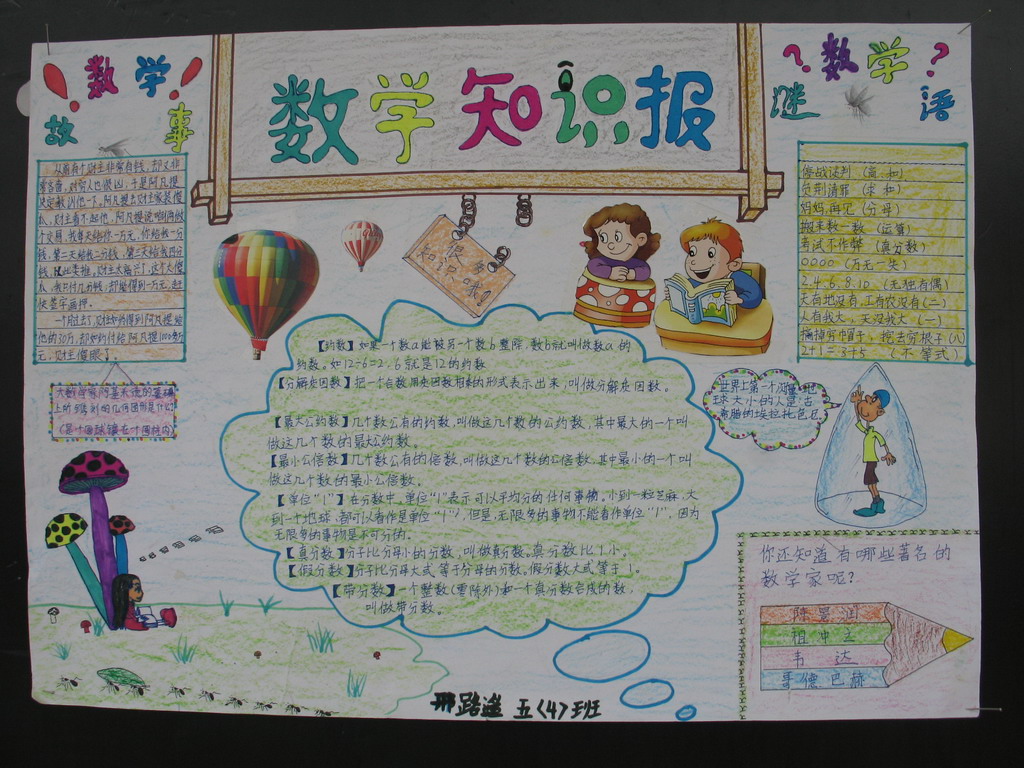 数学知识报
数学
故事
从前有个财主非常有钱,却又非
常吝啬,对穷人也很凶,于是阿凡提
决定教训他一下。阿凡提去财主家装傻
瓜,财主看不起他,阿凡提说咱俩做
个交易,我每天给你一万元,你给我一分
钱,第二天给我二分钱,第三天给我四分
钱,
瓜,我只付几分钱,却能得到一万元,赶
快签字画押。
一个月过了,财主如约得到阿凡提给
他的30万,却如约付给阿凡提
元,财主傻眼了。
大数学家阿基米德的墓碑
上的镌刻的几何图形是什么?
数学
谜语
停战谈判(商、和)
负荆请罪(求和)
妈妈再见(分母)
搬来数一数(运算)
考试不作弊(真分数)
0000(万无一失)
2、4、6、8、10、(无独有偶)
天有地没有,工有农没有(二)
人有我大,天没我大(一)
2+1=3+5(不等式)
很多
知识哦!
【约数】如果一个数a能被另一个数b整除,数b就叫做数a的
约数。如12÷6=2,6就是12的约数
【分解质因数】把一个合数用质因数相乘的形式表示出来,叫做分解质因数。
【最大公约数】几个数公有的约数,叫做这几个数的公约数,其中最大的一个叫
做这几个数的最大公约数。
【最小公倍数】几个数公有的倍数,叫做这几个数的公倍数,其中最小的一个叫
做这几个数的最小公倍数。
【单位“1”】在分数中,单位“1”表示可以平均分的任何事物。小到一粒芝麻,大
到一个地球,都可以看作是单位“1”,但是,无限多的事物不能看作单位“1”,因为
无限多的事物是不可分的。
【真分数】分子比分母小的分数,叫做真分数。真分数比1小。
【假分数】分子比分母大或等于分母的分数。假分数大或等于1。
【带分数】一个整数(零除外)和一个真分数合成的数,
叫做带分数。
世界上第一个测量地
球大小的人是:古
希腊的埃拉托色尼
你还知道有哪些著名的
数学家呢?
陈景润
祖冲之
韦达
哥德巴赫
邢路遥 五〈4〉班